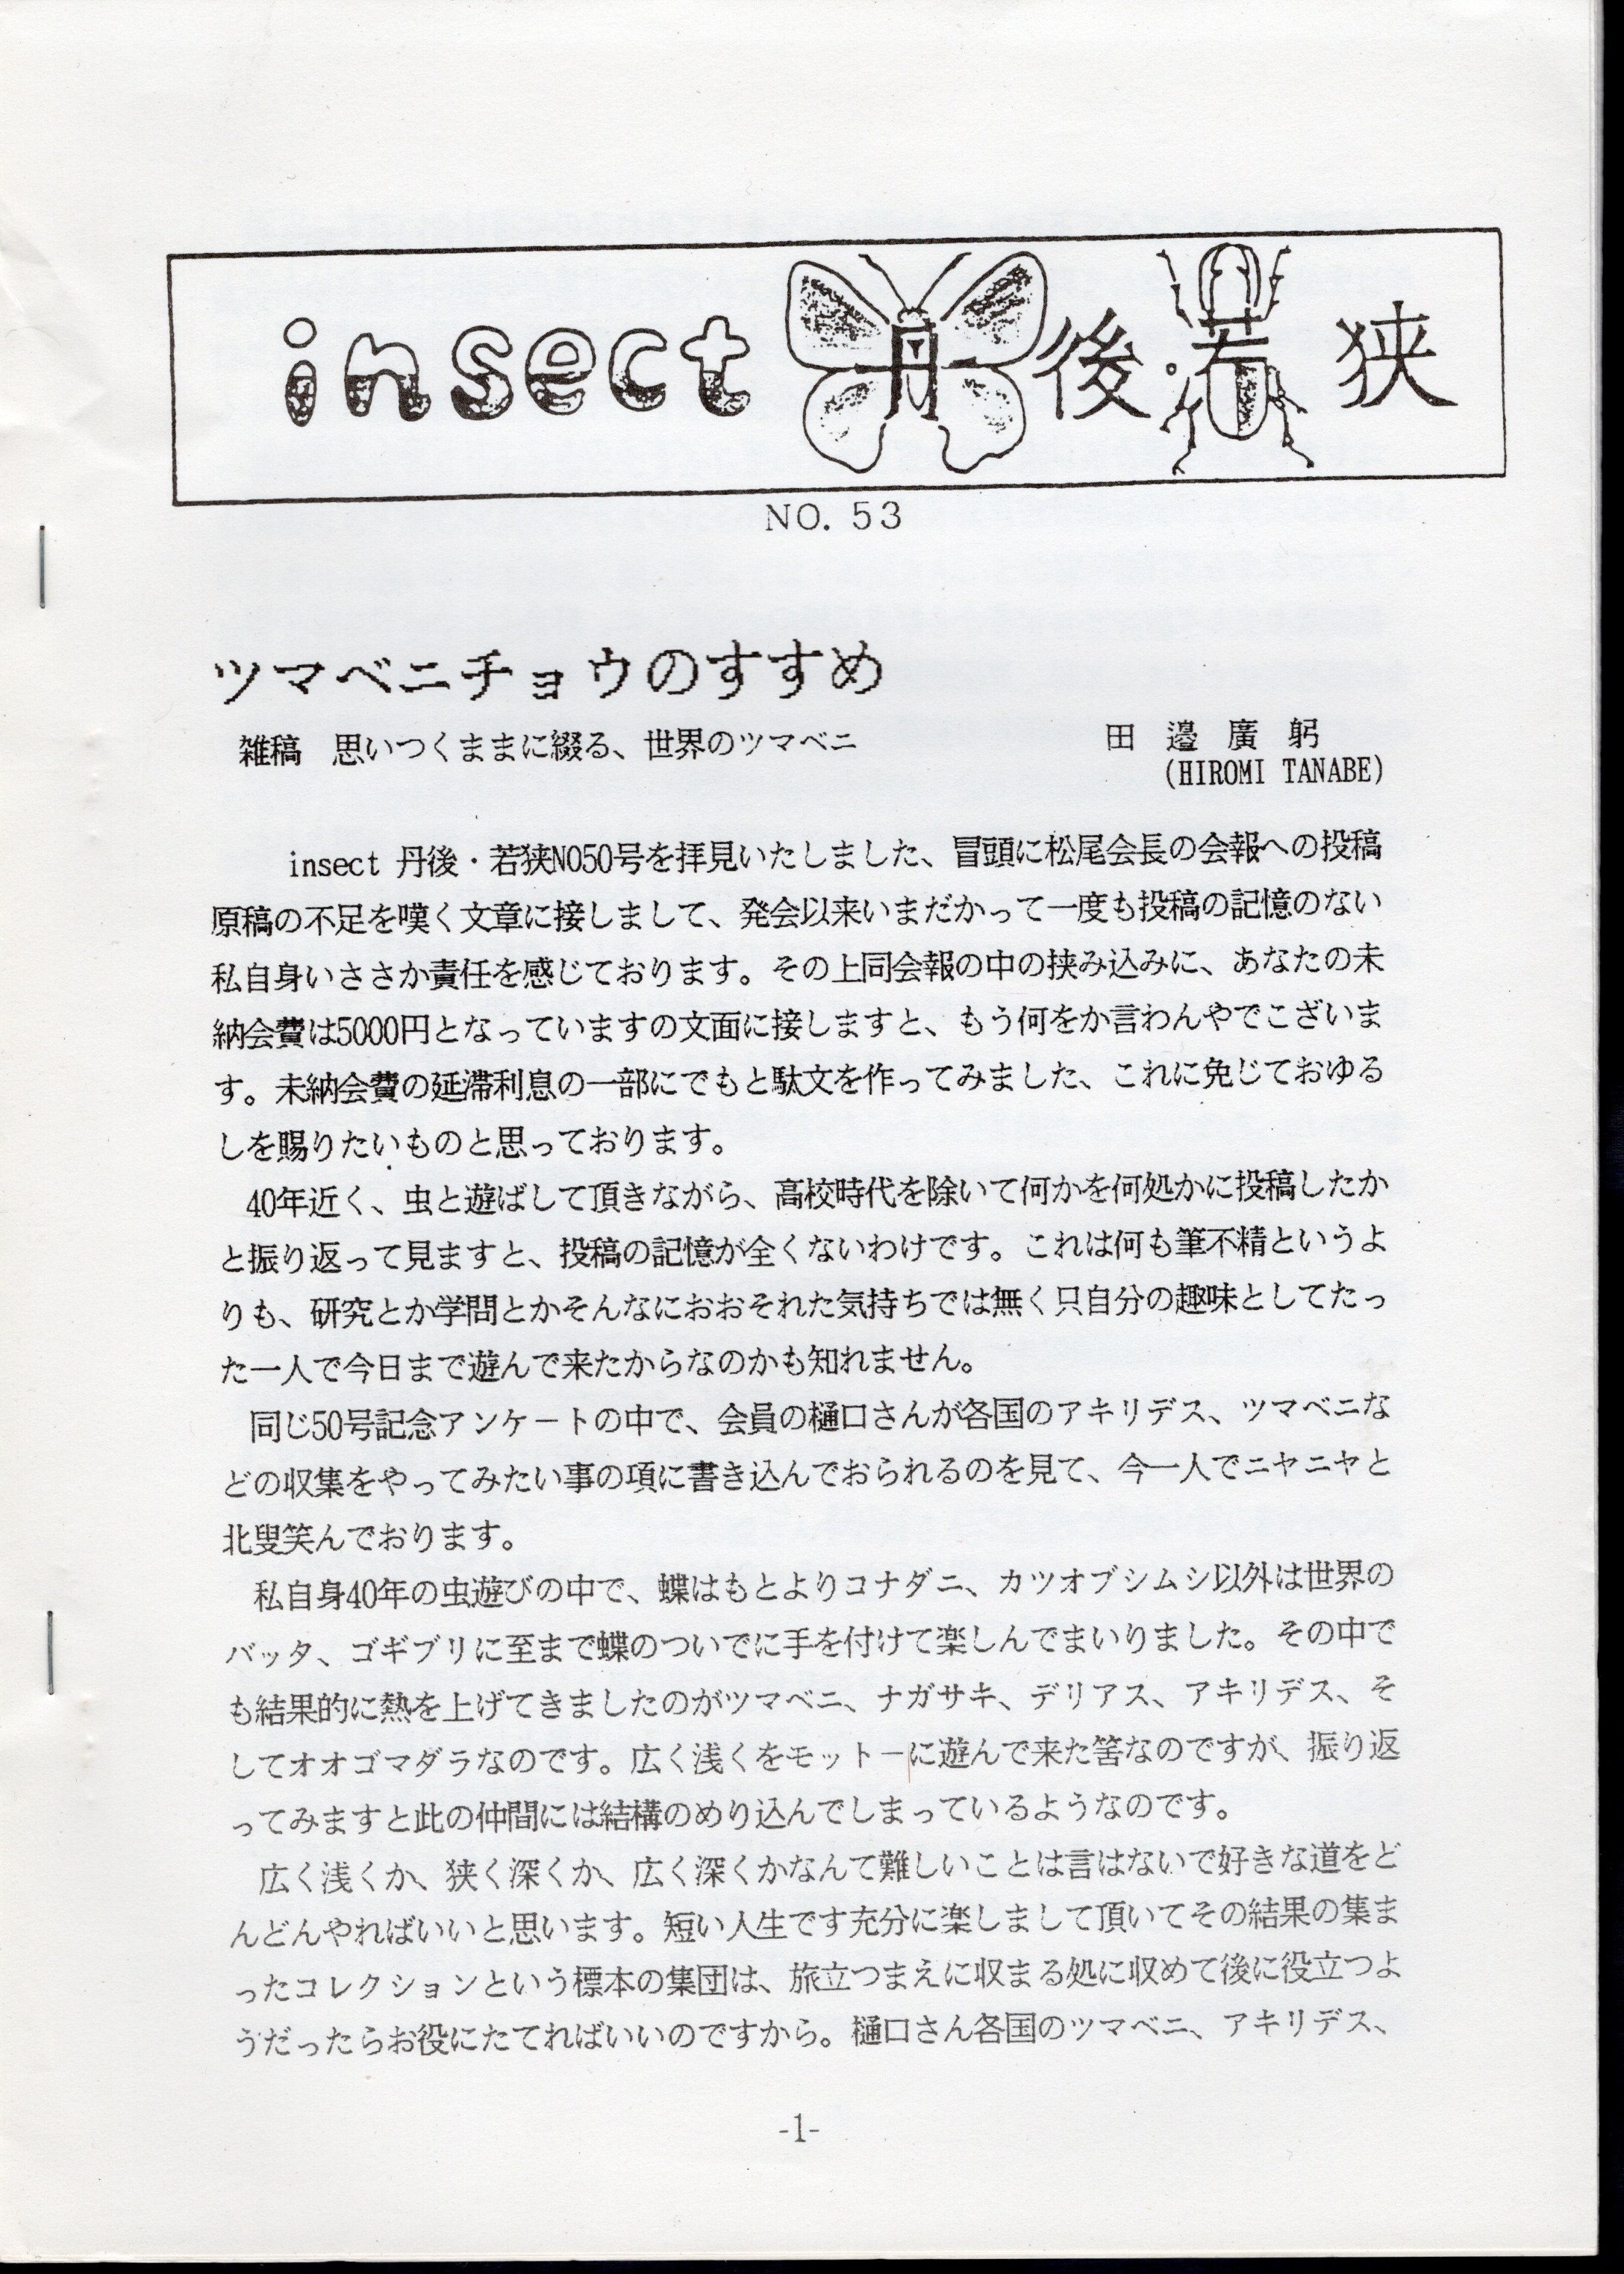 insect 丹後・若狭
NO. 53
ツマベニチョウのすすめ
雑稿　思いつくままに綴る、世界のツマベニ
田　邉　廣　躬
(HIROMI TANABE)
insect 丹後・若狭NO50号を拝見いたしました、冒頭に松尾会長の会報への投稿
原稿の不足を嘆く文章に接しまして、発会以来いまだかって一度も投稿の記憶のない
私自身いささか責任を感じております。その上同会報の中の挟み込みに、あなたの未
納会費は5000円となっていますの文面に接しますと、もう何をか言わんやでこざいま
す。未納会費の延滞利息の一部にでもと駄文を作ってみました、これに免じておゆる
しを賜りたいものと思っております。
40年近く、虫と遊ばして頂きながら、高校時代を除いて何かを何処かに投稿したか
と振り返って見ますと、投稿の記憶が全くないわけです。これは何も筆不精というよ
りも、研究とか学問とかそんなにおおそれた気持ちでは無く只自分の趣味としてたっ
た一人で今日まで遊んで来たからなのかも知れません。
同じ50号記念アンケートの中で、会員の樋口さんが各国のアキリデス、ツマベニな
どの収集をやってみたい事の項に書き込んでおられるのを見て、今一人でニヤニヤと
北叟笑んでおります。
私自身40年の虫遊びの中で、蝶はもとよりコナダニ、カツオブシムシ以外は世界の
バッタ、ゴギブリに至まで蝶のついでに手を付けて楽しんでまいりました。その中で
も結果的に熱を上げてきましたのがツマベニ、ナガサキ、デリアス、アキリデス、そ
してオオゴマダラなのです。広く浅くをモットーに遊んで来た筈なのですが、振り返
ってみますと此の仲間には結構のめり込んでしまっているようなのです。
広く浅くか、狭く深くか、広く深くかなんて難しいことは言はないで好きな道をど
んどんやればいいと思います。短い人生です充分に楽しまして頂いてその結果の集ま
ったコレクションという標本の集団は、旅立つまえに収まる処に収めて後に役立つよ
うだったらお役にたてればいいのですから。樋口さん各国のツマベニ、アキリデス、
-1-